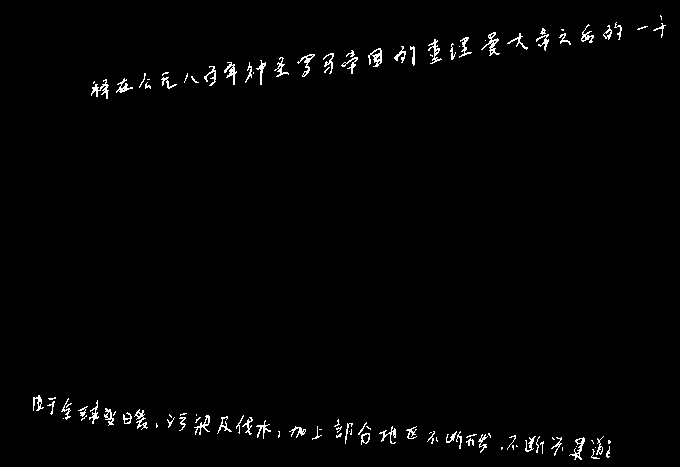 释在公元八百年神圣罗马帝国的查理曼大帝之后的一千
由于全球变暖，污染及伐木，加上部分地区不断开发，不断兴具道